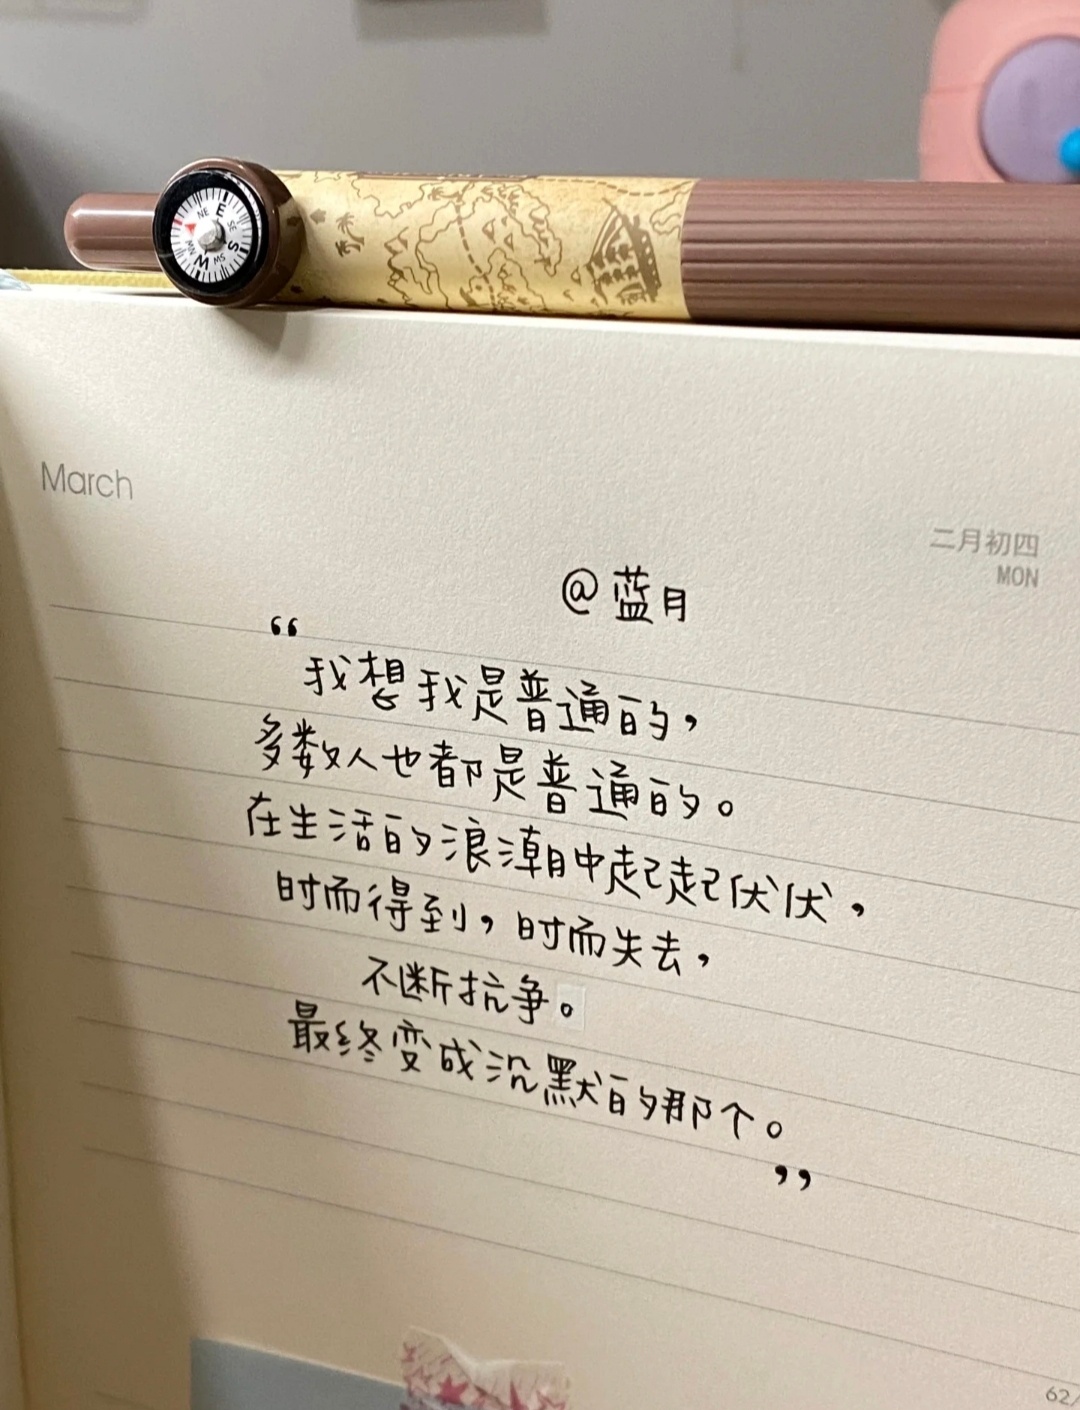 March
二月初四
MON
@蓝月
“
我想我是普通的,
多数人也都是普通的。
在生活的浪潮中起起伏伏,
时而得到,时而失去,
不断抗争。
最终变成沉默的那个。
”
62/
NE E SE S SW W NW